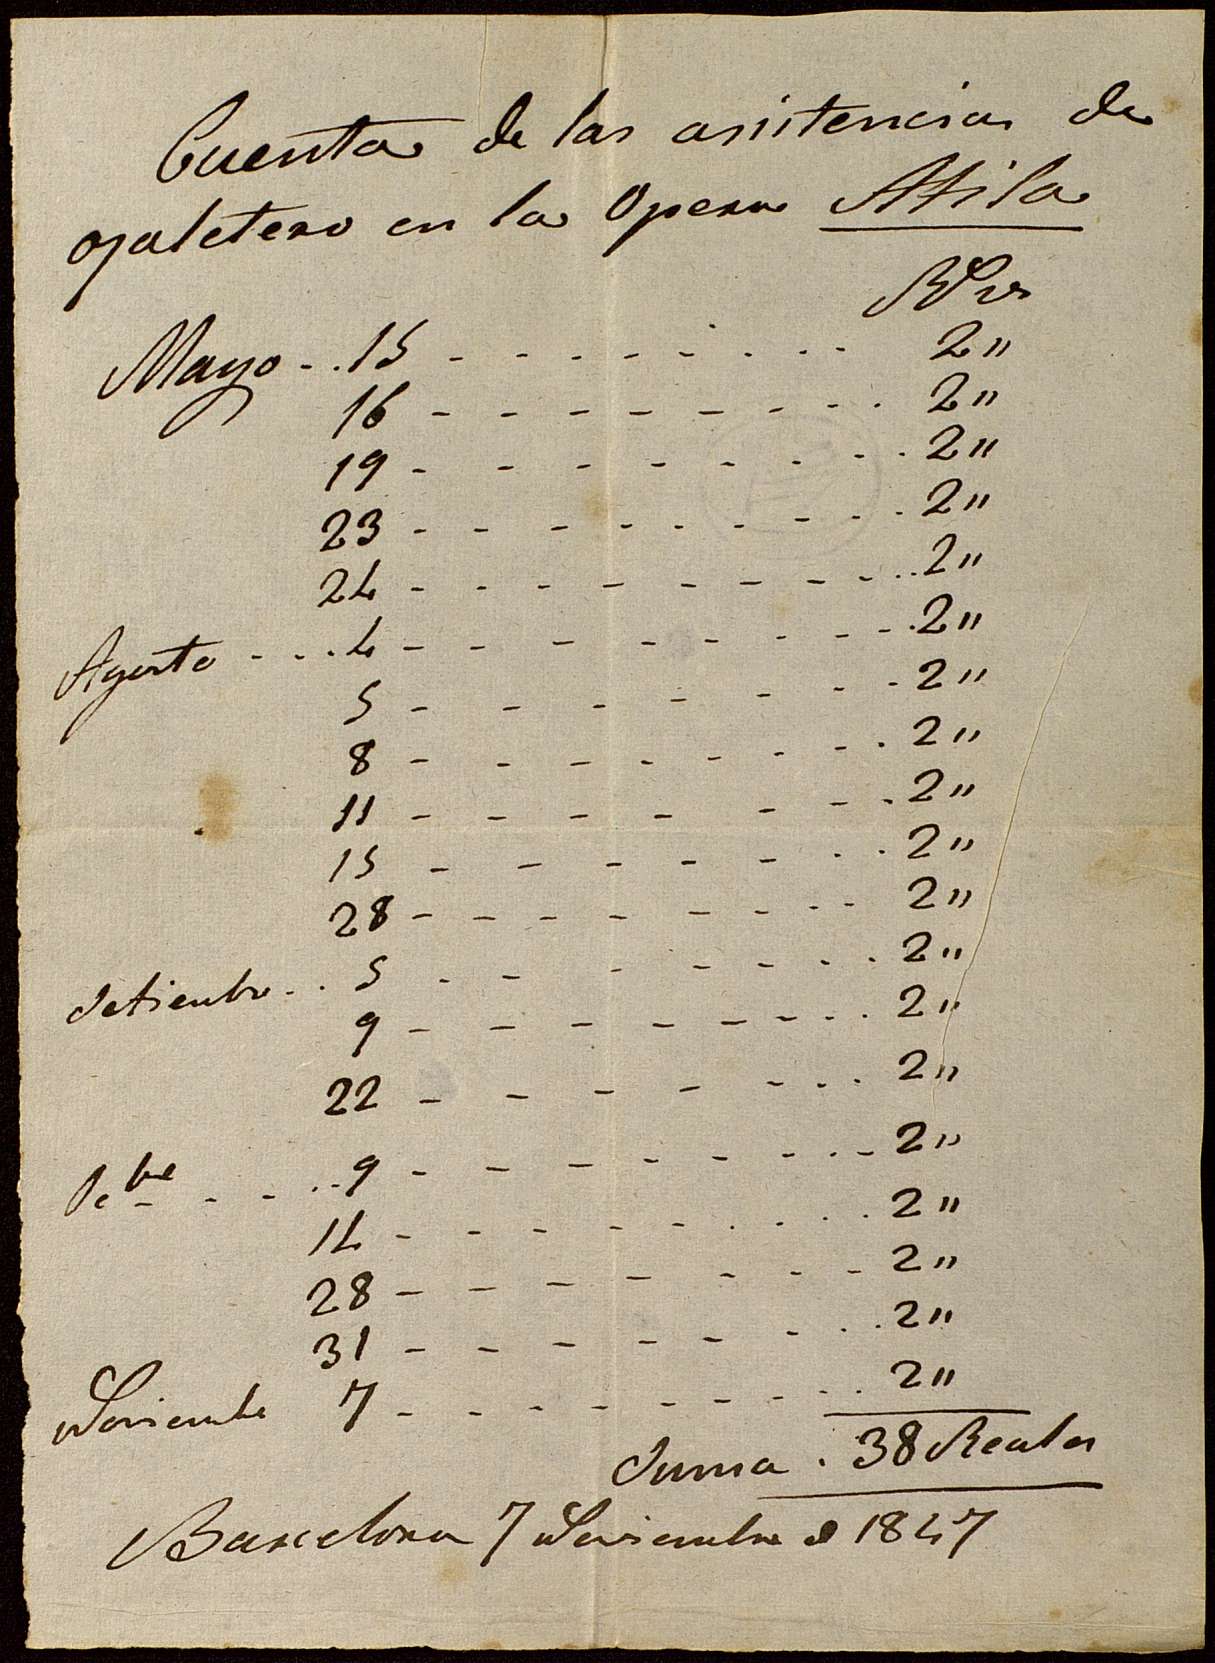 Cuenta de las asistencias de
ojaletero en la Opera Atila
Rs vn
Mayo - . . 15 - - - - - - - - 2 "
16 - - - - - - - - 2 "
19 - - - - - - - - 2 "
23 - - - - - - - - 2 "
24 - - - - - - - - 2 "
Agosto - - . . 4 - - - - - - - - 2 "
5 - - - - - - - 2 "
8 - - - - - - - - 2 "
11 - - - - - - - 2 "
15 - - - - - - - 2 "
28 - - - - - - - - 2 "
Setiembre . . 5 - - - - - - - 2 "
9 - - - - - - - - 2 "
22 - - - - - - - 2 "
8cbre - - - . . 9 - - - - - - - - 2 "
14 - - - - - - - - 2 "
28 - - - - - - - 2 "
31 - - - - - - - 2 "
Noviembe 7 - - - - - - - - 2 "
Suma . 38 Reales
Barcelona 7 Noviembre d 1847